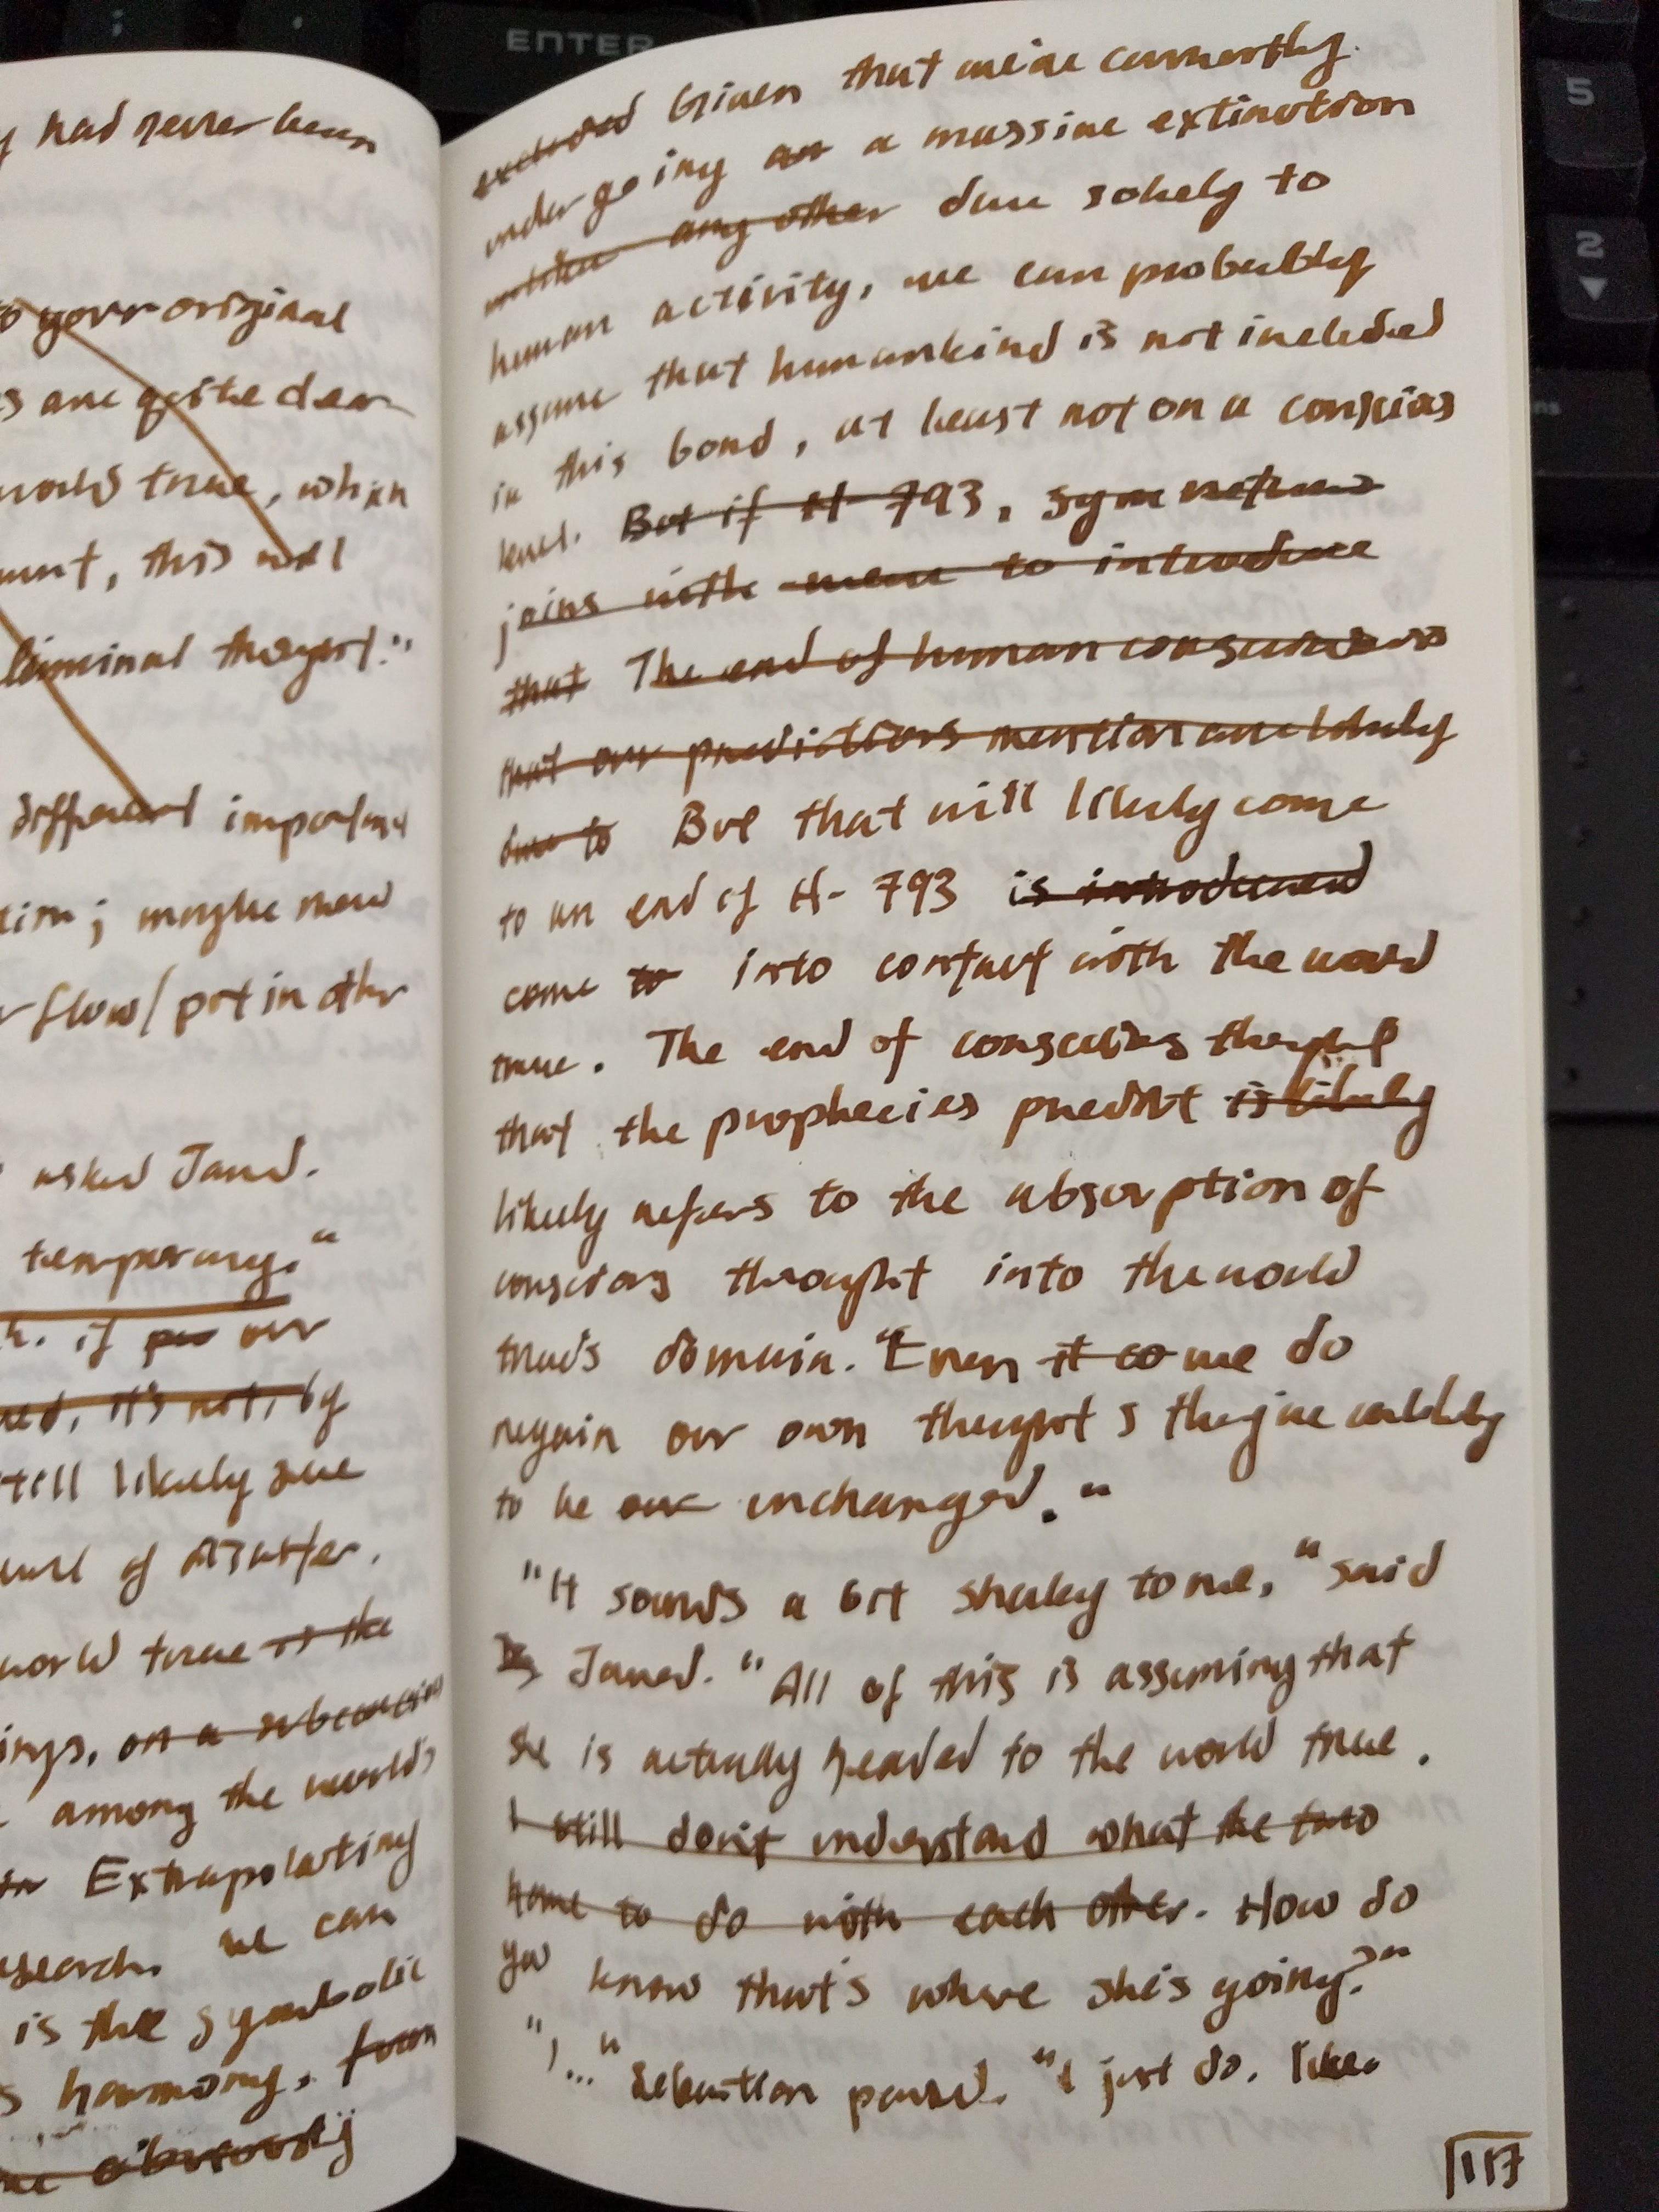 ENTER
5
2
had never been
your original
s are quite clear
world true, which
this will
liminal thought."
different important
; maybe mend
flow/put in other
asked Jared.
temporary."
if our
ed, it's not, by
still likely give
of disaster.
world true is the
on a subconscious
among the world's
Extrapolating
research we can
is the symbolic
harmony, from
obviously
excluded Given that we're currently
undergoing an a massive extinction
unlike any other due solely to
human activity, we can probably
assume that humankind is not included
in this bond, at least not on a conscious
level. But if H-793, sym
joins with to introduce
that The end of human consciousness
that our predictions mention are likely
due to But that will likely come
to an end if H-793 is introduced
come to into contact with the world
true. The end of conscious thought
that the prophecies predict is likely
likely refers to the absorption of
conscious thought into the world
true's domain. "Even it co we do
regain our own thoughts they're unlikely
to be our unchanged."
"It sounds a bit shaky to me," said
Jared. "All of this is assuming that
she is actually headed to the world true.
I still don't understand what the two
have to do with each other. How do
you know that's where she's going?"
"I..." Sebastian paused. "I just do. Like
117